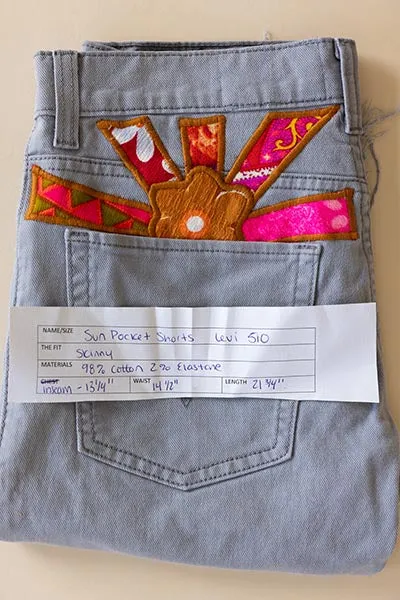 NAME/SIZE Sun Pocket Shorts Levi 510
THE FIT Skinny
MATERIALS 98% Cotton 2% Elastane
CHEST inseam - 13 1/4" WAIST 14 1/2" LENGTH 21 3/4"